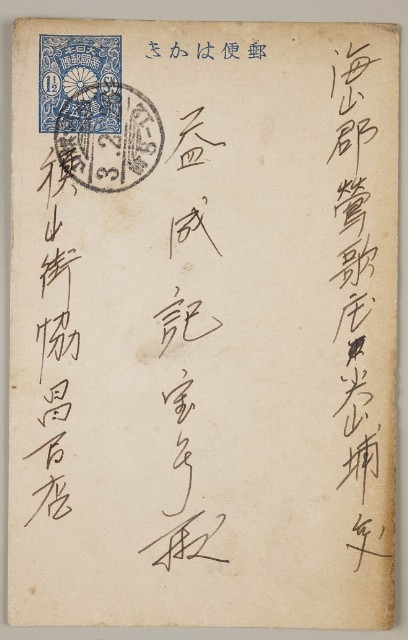 郵便はかき
大日本
帝國郵便
1½
海山郡鶯歌庄尖山埔交
益成記宝号殿
横山街協昌百店
3.2